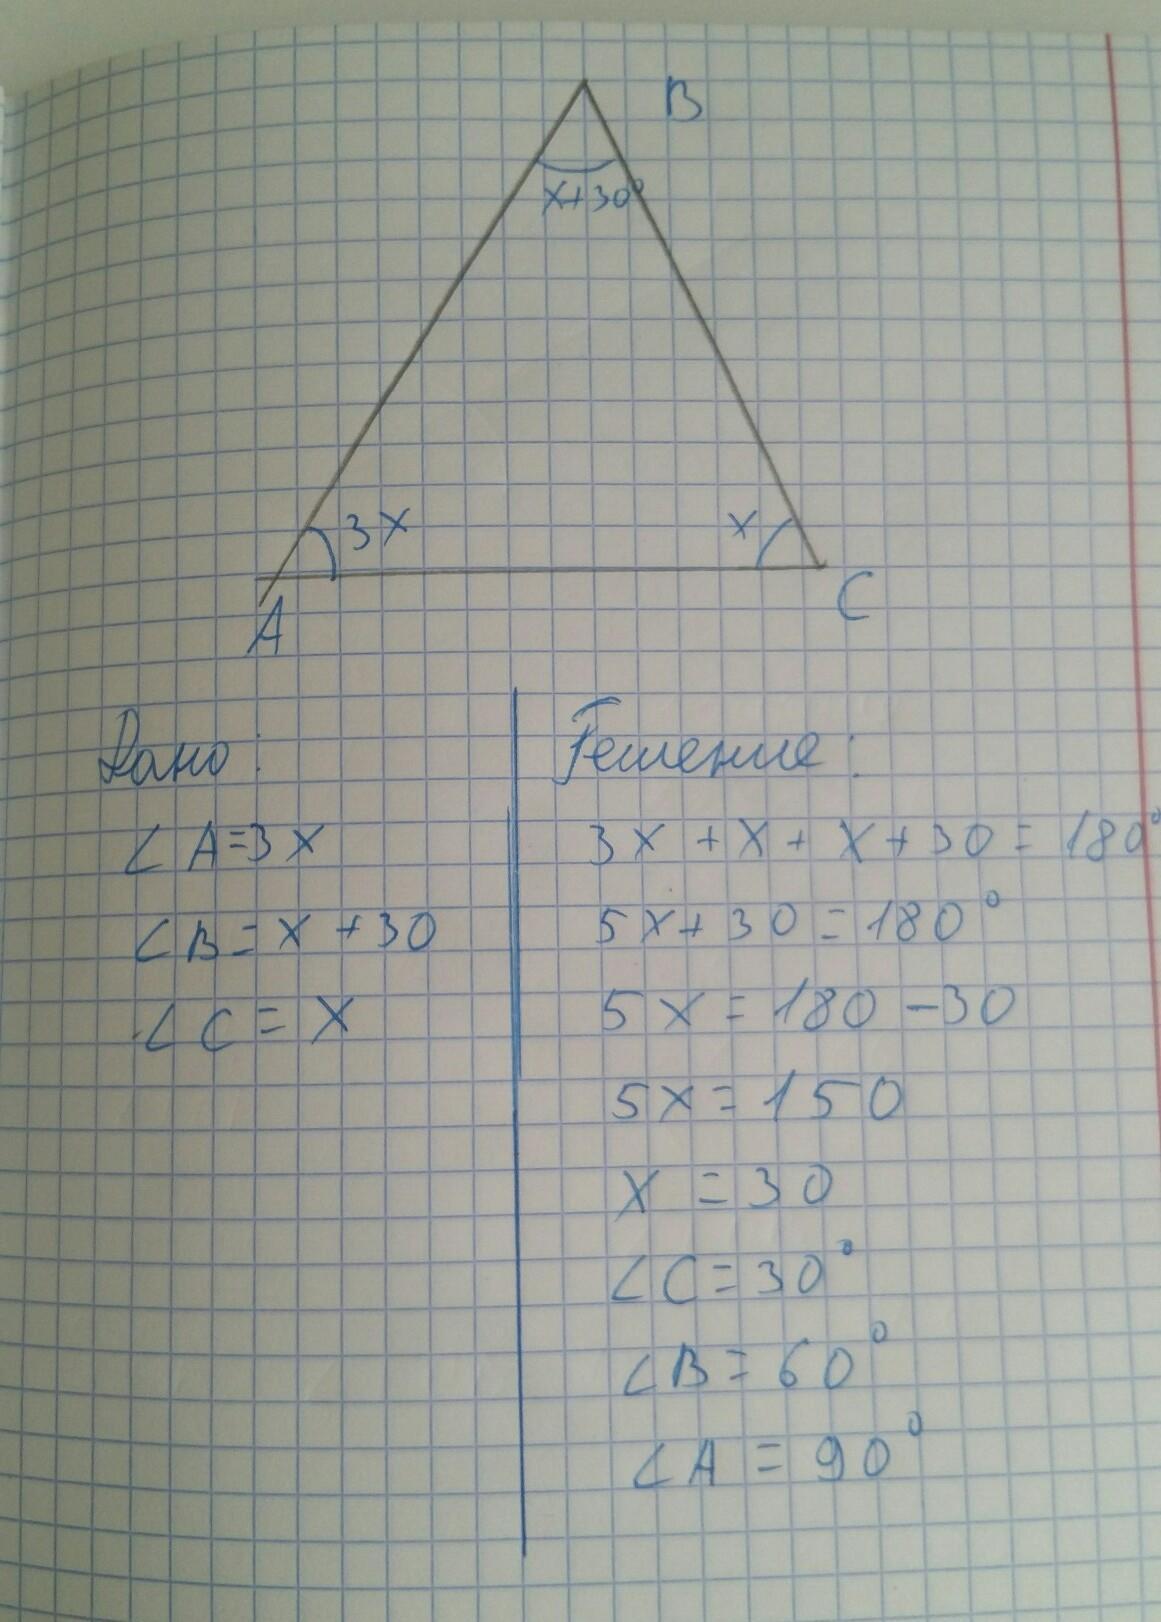 B
x+30°
3x
x
A
C
Дано:
∠A=3x
∠B=x+30
∠C=x
Решение:
3x+x+x+30=180°
5x+30=180°
5x=180-30
5x=150
x=30
∠C=30°
∠B=60°
∠A=90°